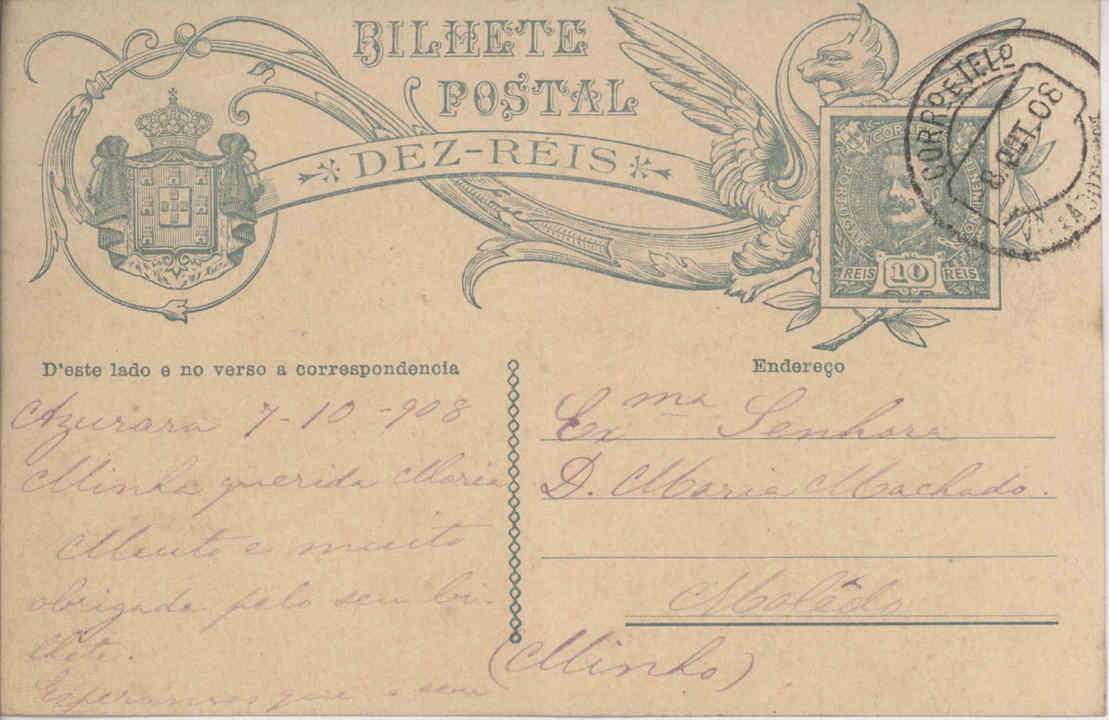 BILHETE
POSTAL
DEZ-RÉIS
REIS 10 REIS
CORRO E TELO
8 OUT. 08
D'este lado e no verso a correspondencia
Endereço
Azurara 7-10-908
Minha querida Maria
Muito e muito
obrigada pelo seu bi-
lhete.
Esperamos que o seu
Exma Senhora
D. Maria Machado.
Molêdo
(Minho)